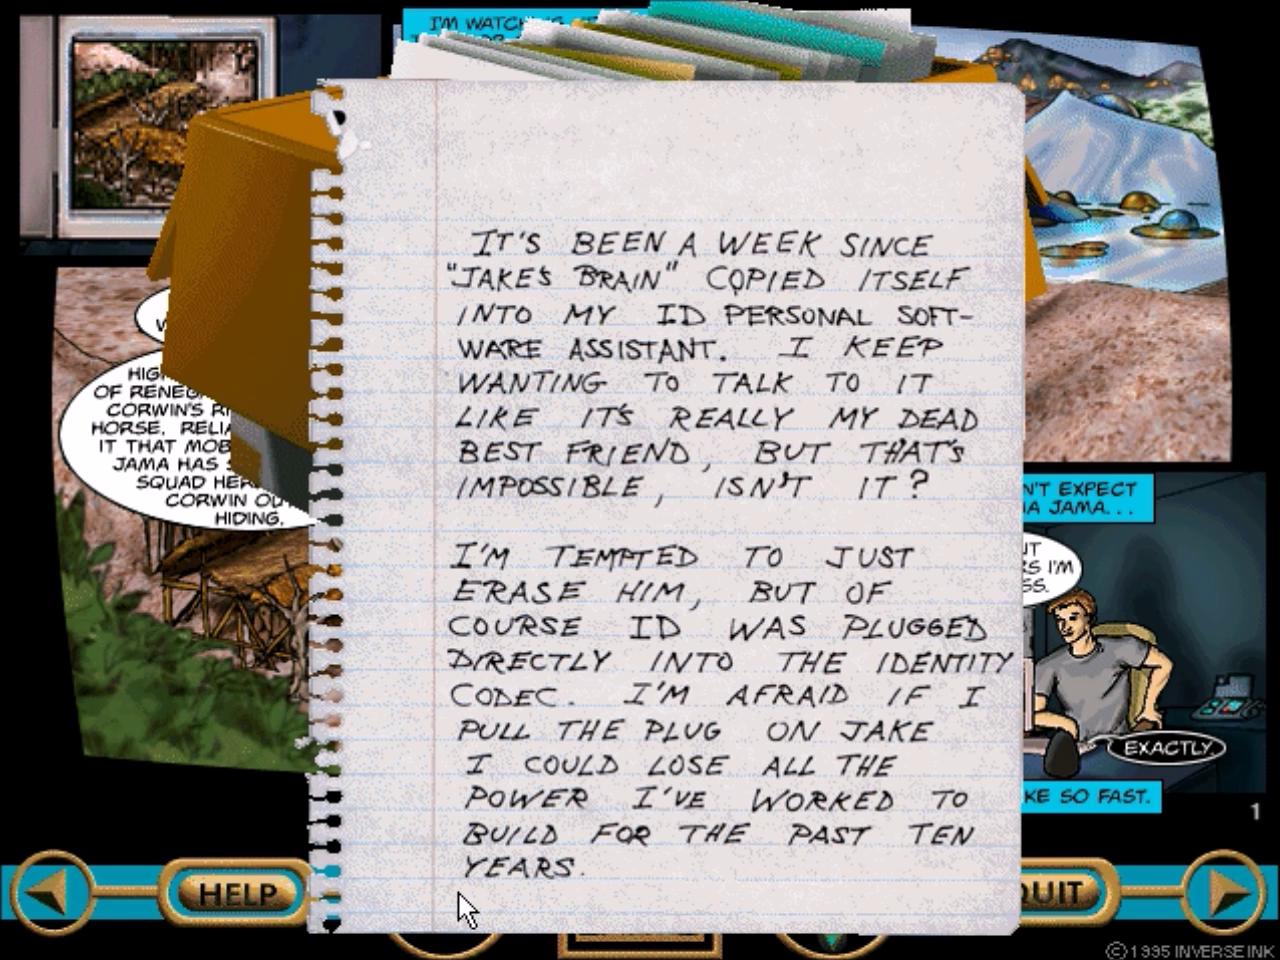 I'M WATCH
IT'S BEEN A WEEK SINCE
"JAKE'S BRAIN" COPIED ITSELF
INTO MY ID PERSONAL SOFT-
WARE ASSISTANT. I KEEP
WANTING TO TALK TO IT
LIKE IT'S REALLY MY DEAD
BEST FRIEND, BUT THAT'S
IMPOSSIBLE, ISN'T IT?
I'M TEMPTED TO JUST
ERASE HIM, BUT OF
COURSE ID WAS PLUGGED
DIRECTLY INTO THE IDENTITY
CODEC. I'M AFRAID IF I
PULL THE PLUG ON JAKE
I COULD LOSE ALL THE
POWER I'VE WORKED TO
BUILD FOR THE PAST TEN
YEARS.
HIG
OF RENEG
CORWIN'S R
HORSE. RELIA
IT THAT MOB
JAMA HAS
SQUAD HER
CORWIN OU
HIDING.
N'T EXPECT
JAMA...
RS I'M
SS.
EXACTLY.
KE SO FAST.
1
HELP
QUIT
© 1995 INVERSE INK